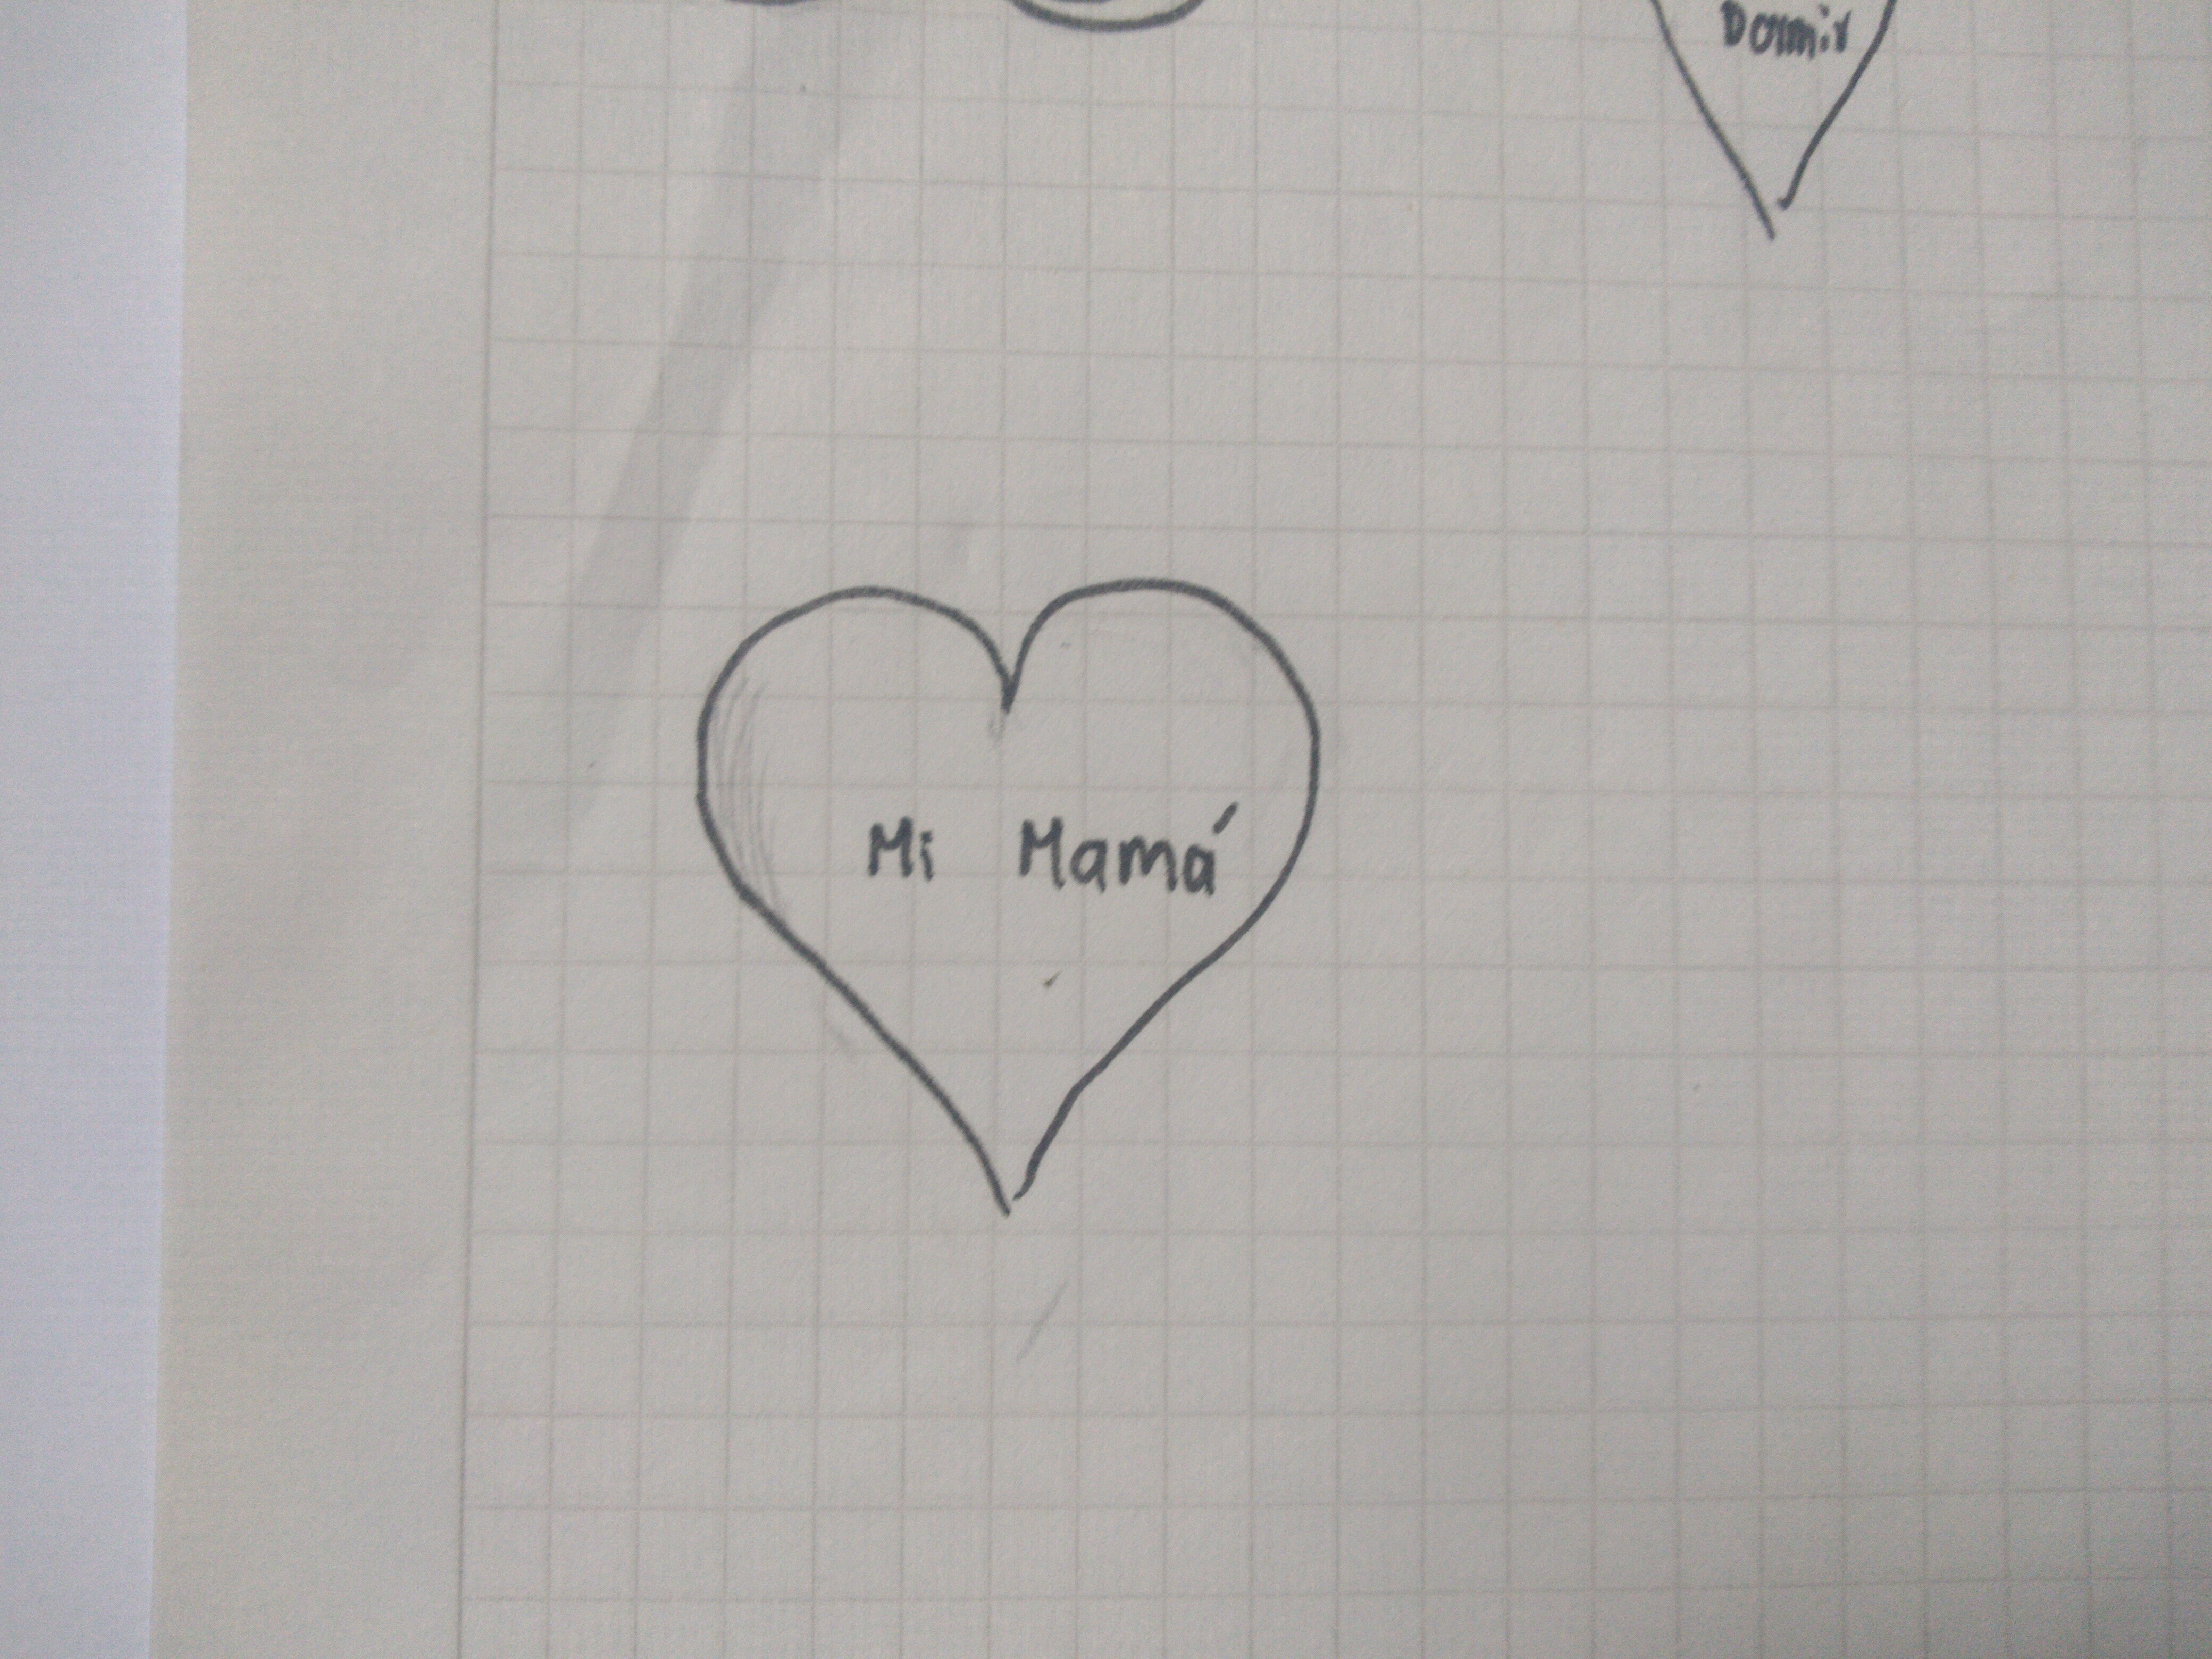 Dormir
Mi Mamá